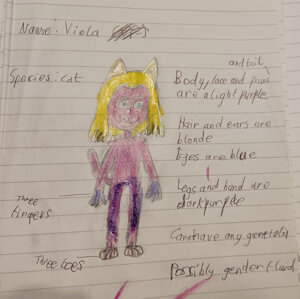 Name: Viola
Species: cat
and tail
Body, face and paws
are a light purple
Hair and ears are
blonde
Eyes are blue
Legs and hand are
darkpurple
Three
fingers
Can have any genetalia
Three toes
Possibly gender